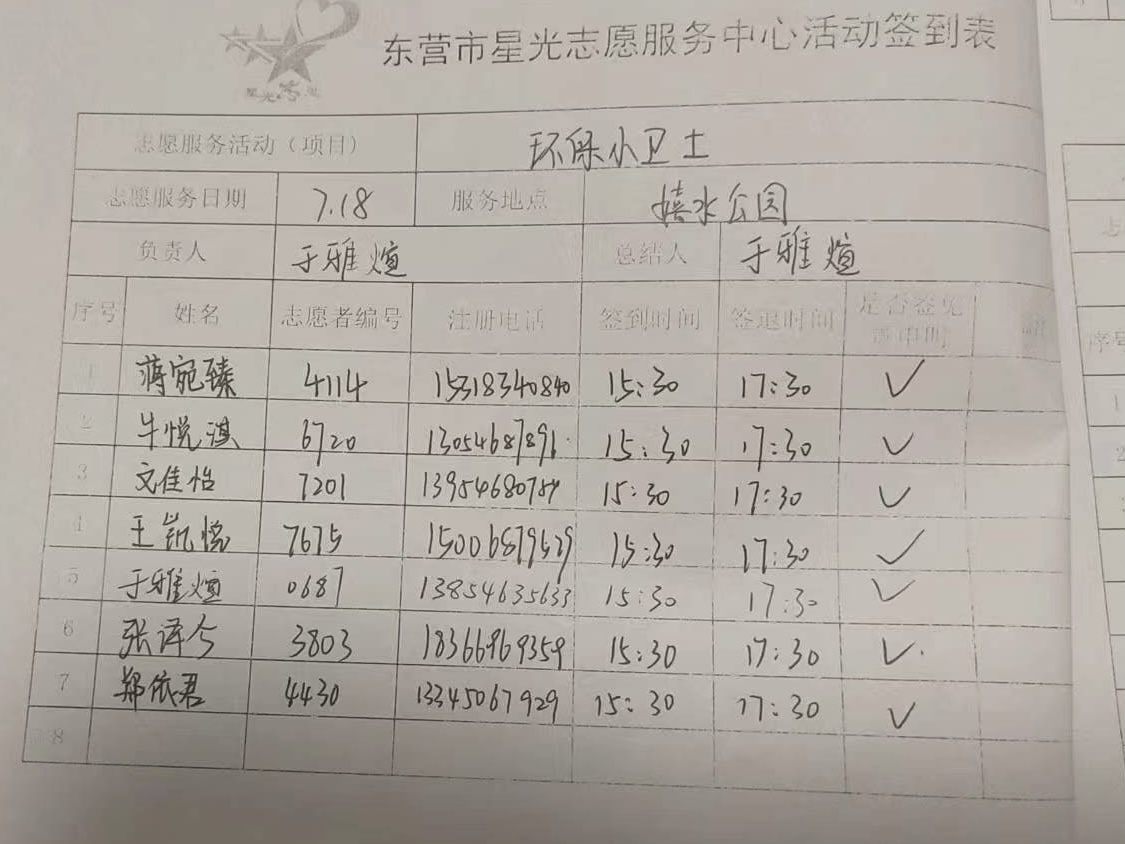 东营市星光志愿服务中心活动签到表
志愿服务活动（项目） 环保小卫士
志愿服务日期 7.18 服务地点 嬉水公园
负责人 于雅煊 总结人 于雅煊
序号 姓名 志愿者编号 注册电话 签到时间 签退时间 是否签免
责申明
序号
1 蒋宛臻 4114 15318340840 15:30 17:30 ✓
2 牛悦淇 6720 13054687891 15:30 17:30 ✓
3 文佳怡 7201 15:30 17:30 ✓
4 王凯悦 7675 15006879529 15:30 17:30 ✓
5 于雅煊 0687 13854635633 15:30 17:30 ✓
6 张译兮 3803 18366969359 15:30 17:30 ✓
7 郑依君 4430 13345067929 15:30 17:30 ✓
8